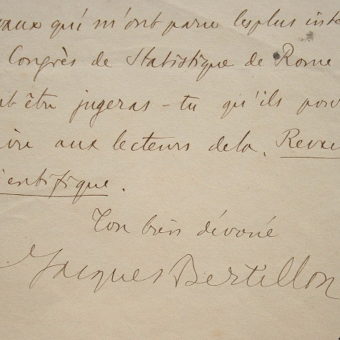 vaux qui m'ont paru les plus inté
Congrès de Statistique de Rome
être jugeras-tu qu'ils pour
aux lecteurs de la Revue
ientifique.
Ton bien dévoué
Jacques Bertillon